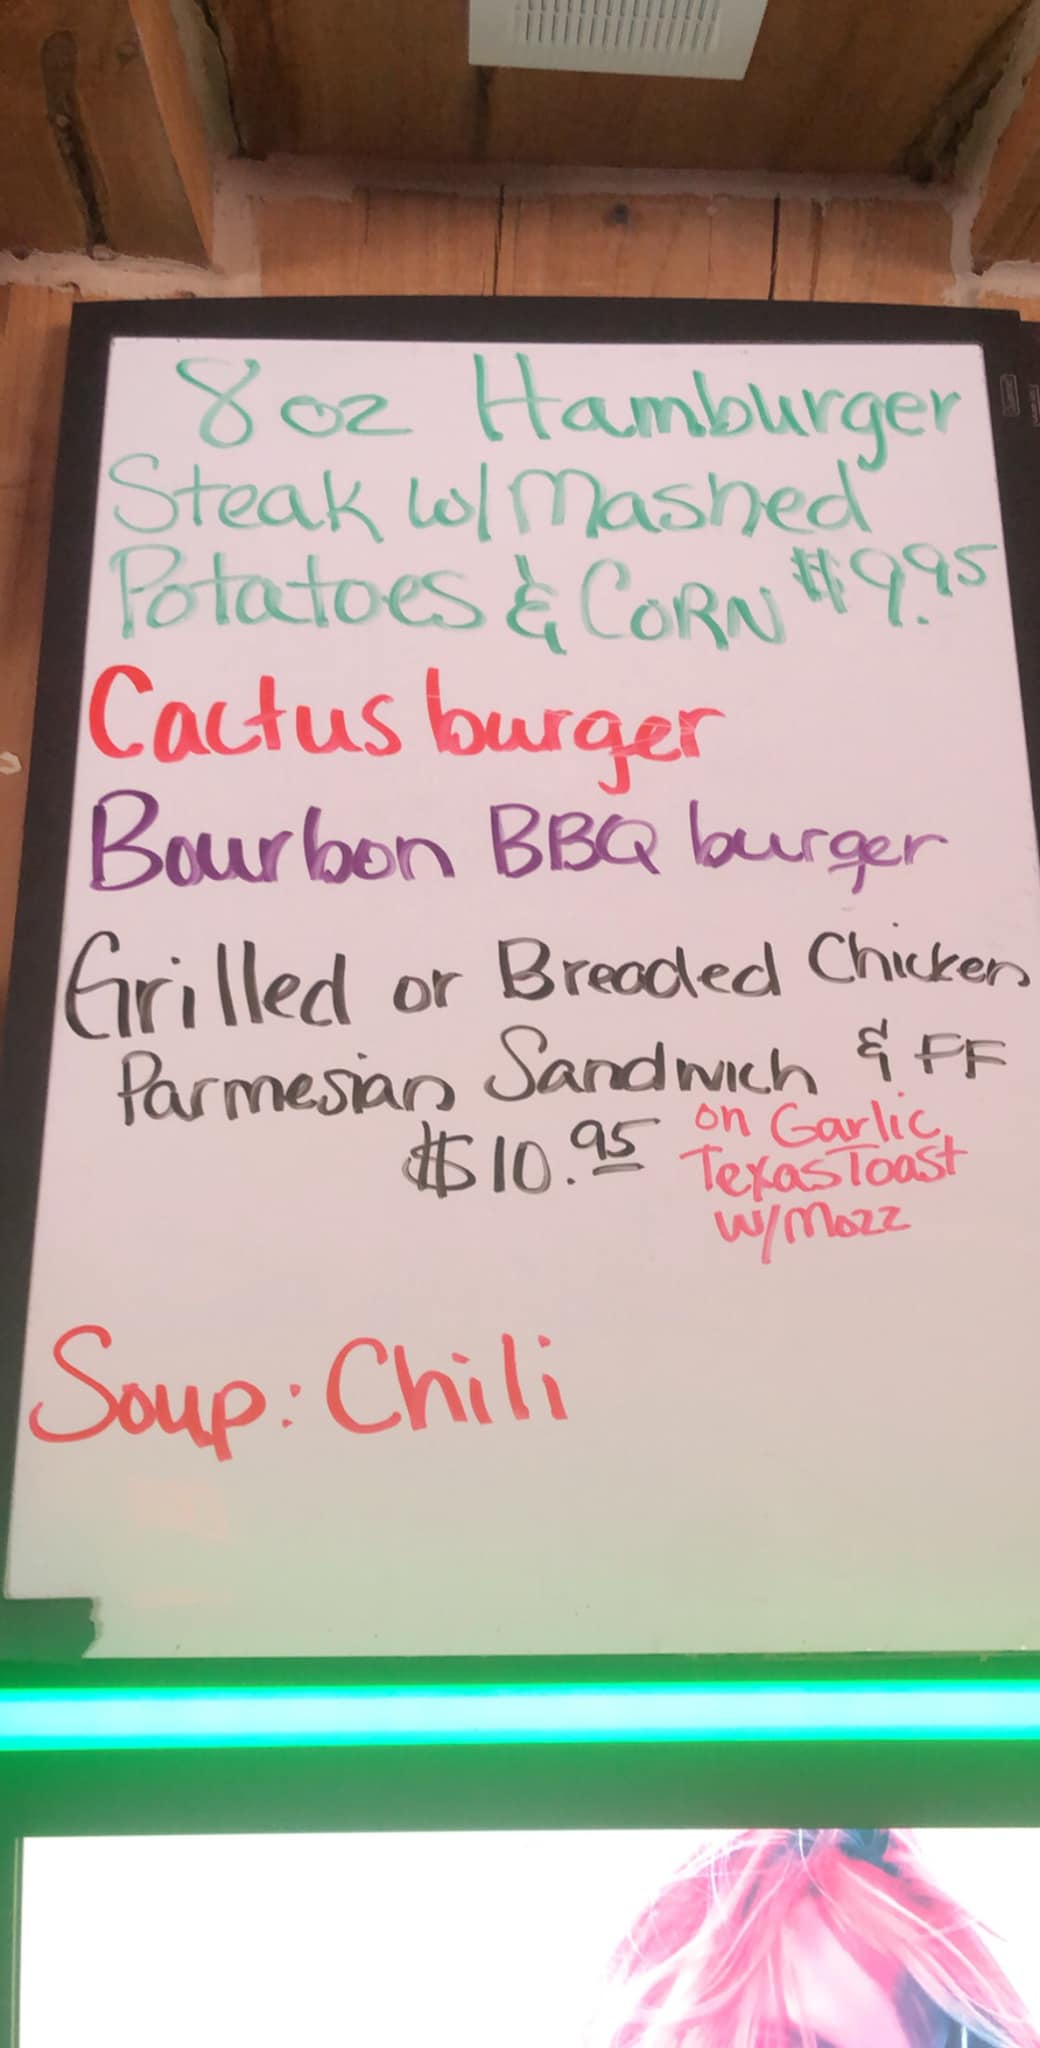 8 oz Hamburger
Steak w/ Mashed
Potatoes & CORN $9.95
Cactus burger
Bourbon BBQ burger
Grilled or Breaded Chicken
Parmesian Sandwich & FF
$10.95 on Garlic
Texas Toast
w/ Mozz
Soup: Chili